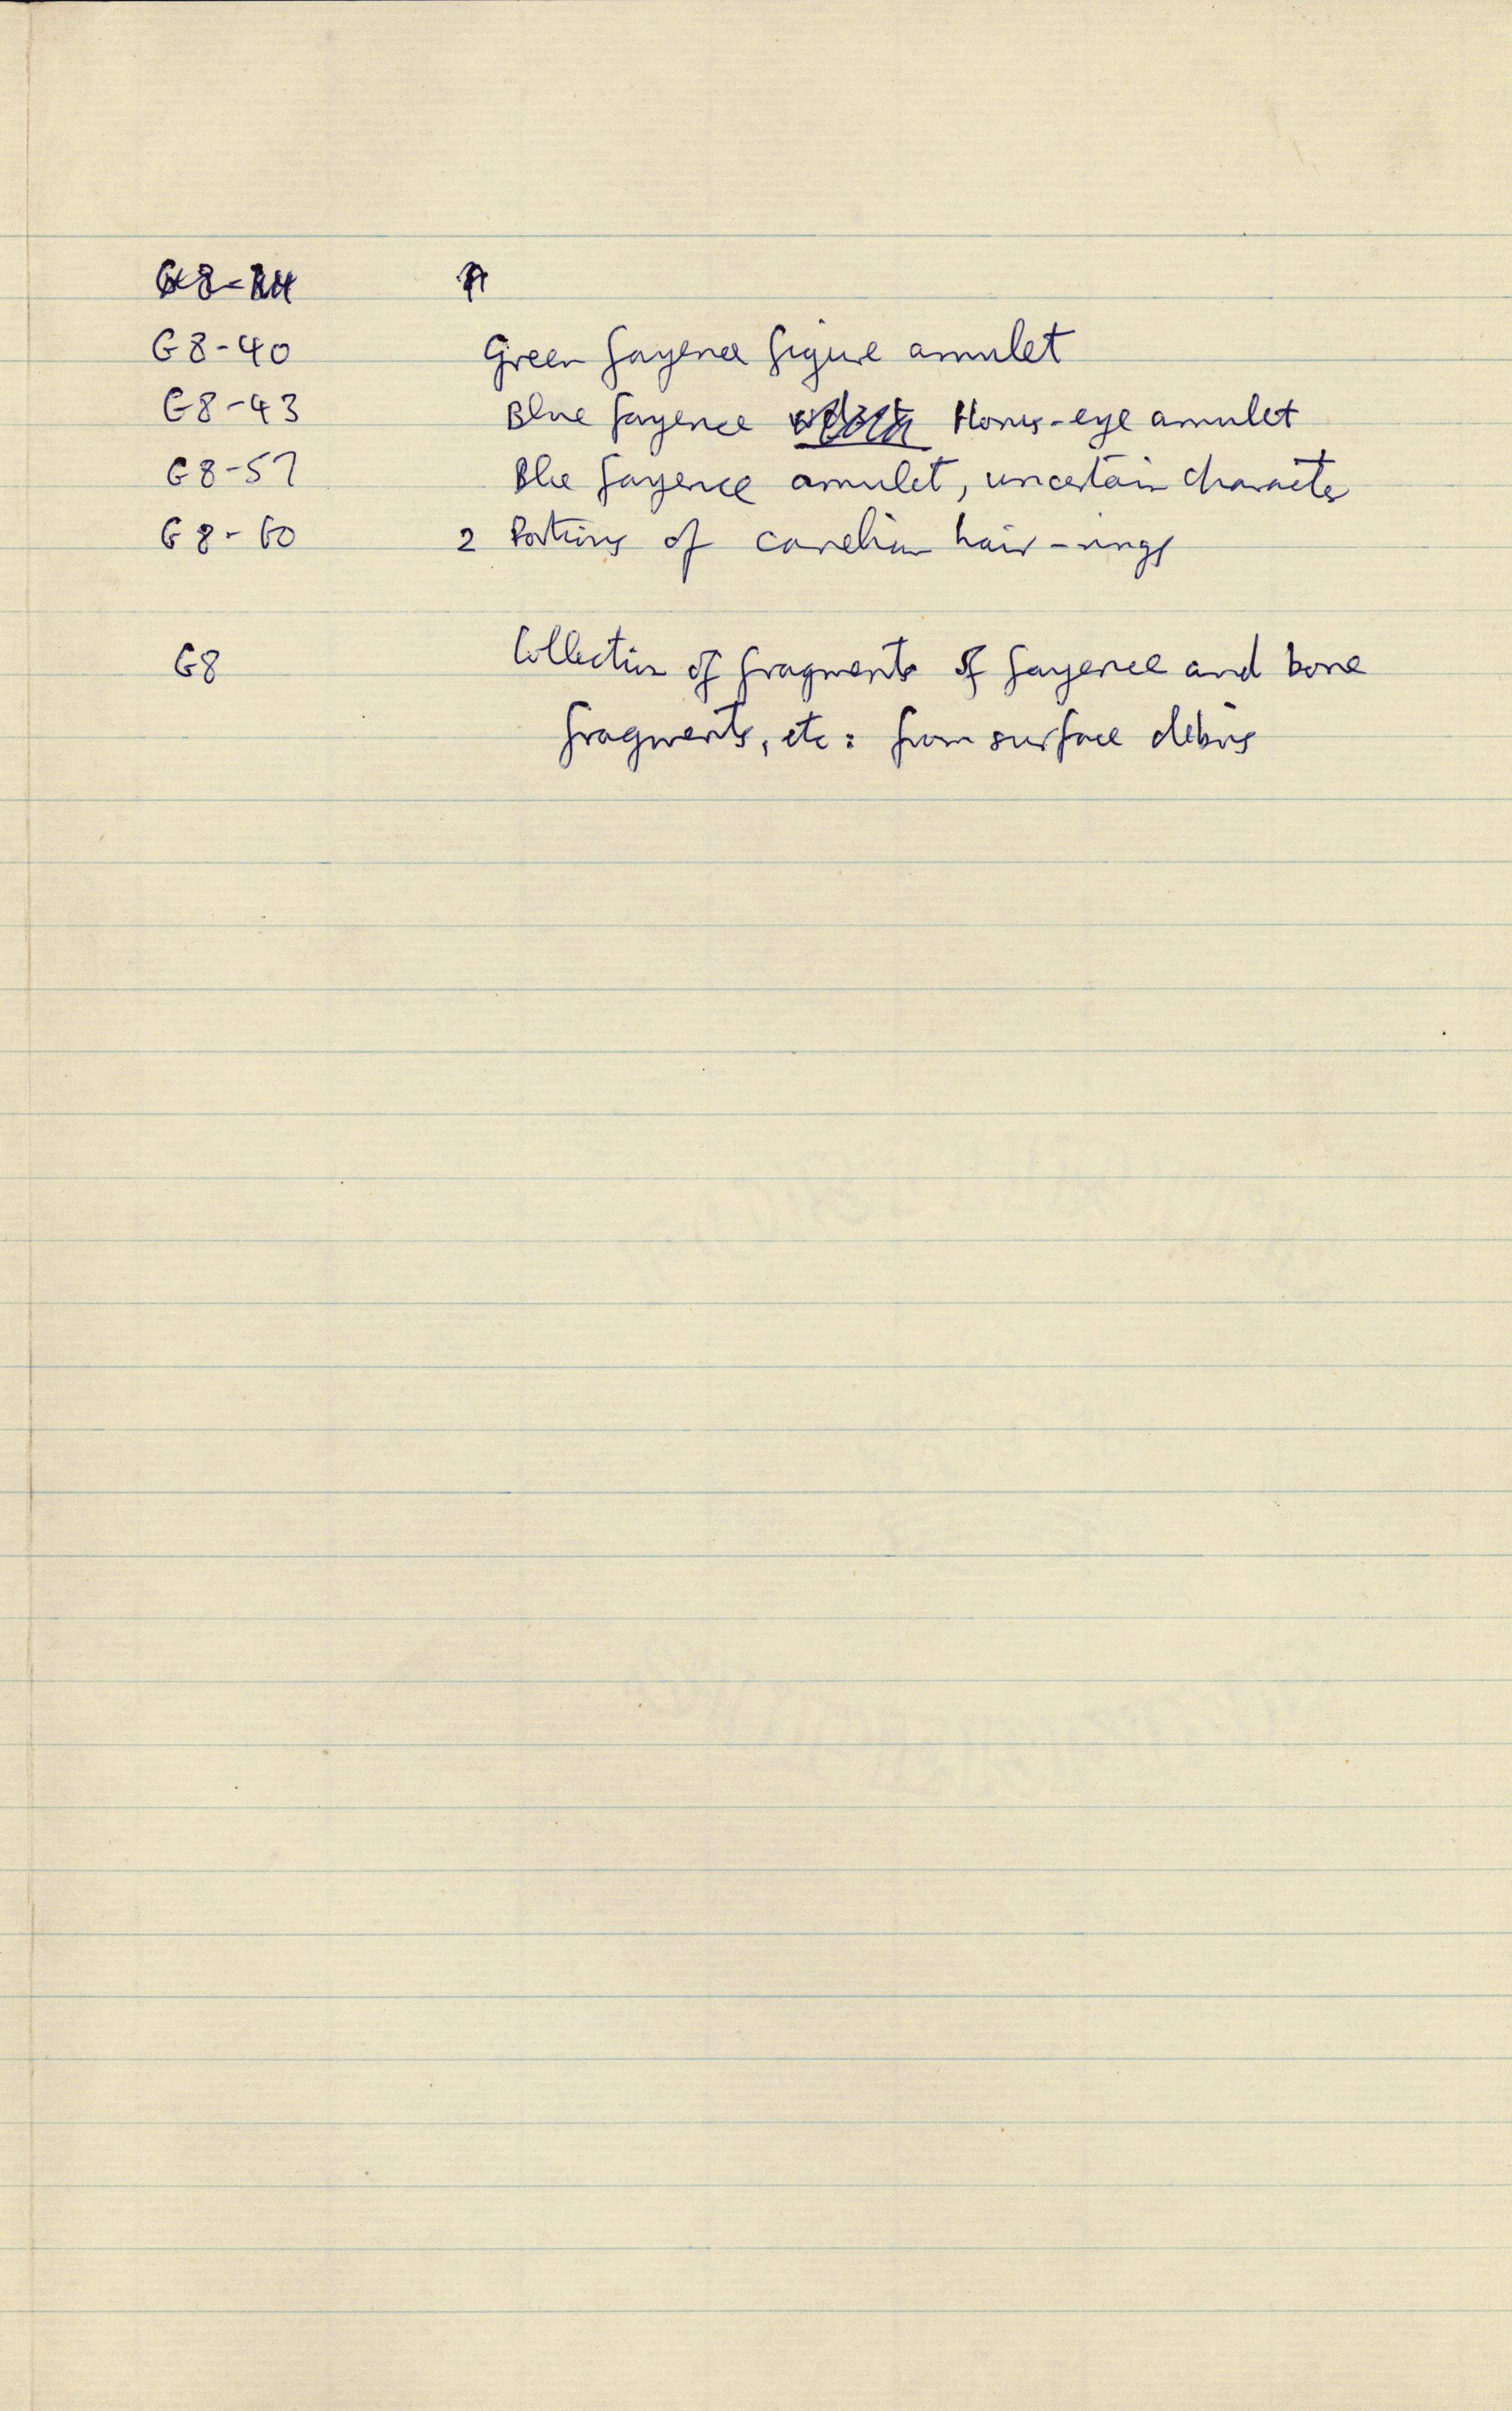 G8-40 Green fayence figure amulet
G8-43 Blue fayence Horus-eye amulet
G8-57 Blue fayence amulet, uncertain character
G8-60 2 Portions of carnelian hair-rings
G8 Collection of fragments of fayence and bone
fragments, etc: from surface debris